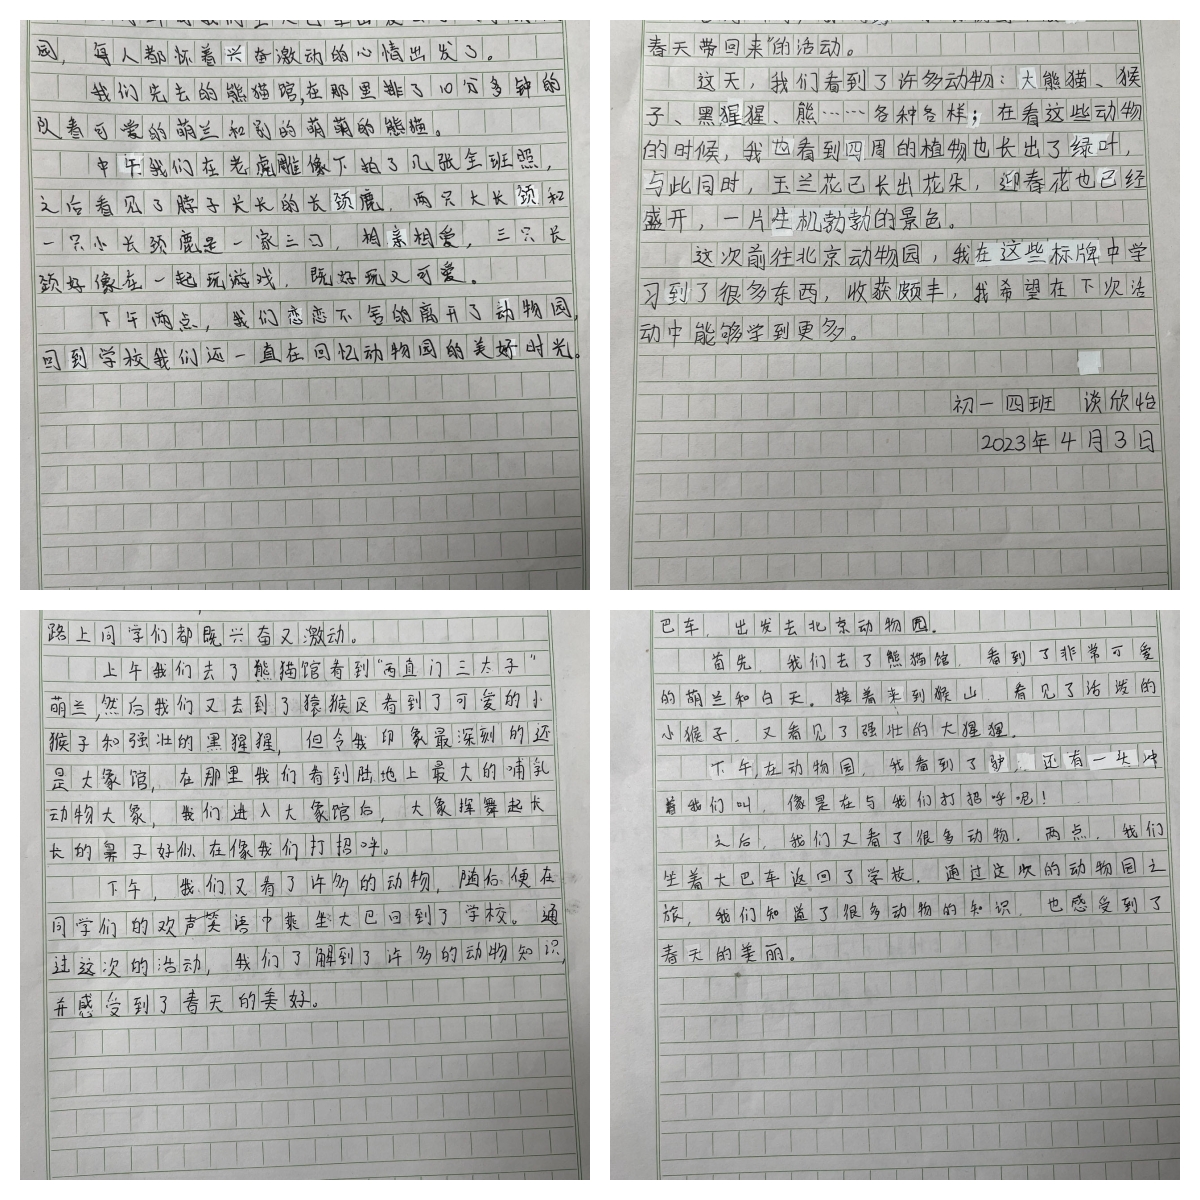 园，每人都怀着兴奋激动的心情出发了。
我们先去的熊猫馆,在那里排了10分多钟的
队看可爱的萌兰和别的萌萌的熊猫。
中午我们在老虎雕像下拍了几张全班照，
之后看见了脖子长长的长颈鹿，两只大长颈和
一只小长颈鹿是一家三口，相亲相爱，三只长
颈好像在一起玩游戏，既好玩又可爱。
下午两点，我们恋恋不舍的离开了动物园，
回到学校我们还一直在回忆动物园的美好时光。
春天带回来"的活动。
这天，我们看到了许多动物：大熊猫、猴
子、黑猩猩、熊……各种各样；在看这些动物
的时候，我也看到四周的植物也长出了绿叶，
与此同时，玉兰花已长出花朵，迎春花也已经
盛开，一片生机勃勃的景色。
这次前往北京动物园，我在这些标牌中学
习到了很多东西，收获颇丰，我希望在下次活
动中能够学到更多。
初一四班 谈欣怡
2023年4月3日
路上同学们都既兴奋又激动。
上午我们去了熊猫馆看到"西直门三太子"
萌兰,然后我们又去到了猿猴区看到了可爱的小
猴子和强壮的黑猩猩，但令我印象最深刻的还
是大象馆，在那里我们看到陆地上最大的哺乳
动物大象，我们进入大象馆后，大象挥舞起长
长的鼻子好似在像我们打招呼。
下午，我们又看了许多的动物，随后便在
同学们的欢声笑语中乘坐大巴回到了学校。通
过这次的活动，我们了解到了许多的动物知识，
并感受到了春天的美好。
巴车，出发去北京动物园。
首先，我们去了熊猫馆，看到了非常可爱
的萌兰和白天。接着来到猴山，看见了活泼的
小猴子，又看见了强壮的大猩猩。
下午在动物园，我看到了驴，还有一头冲
着我们叫，像是在与我们打招呼呢！
之后，我们又看了很多动物，两点，我们
坐着大巴车返回了学校，通过这次的动物园之
旅，我们知道了很多动物的知识，也感受到了
春天的美丽。